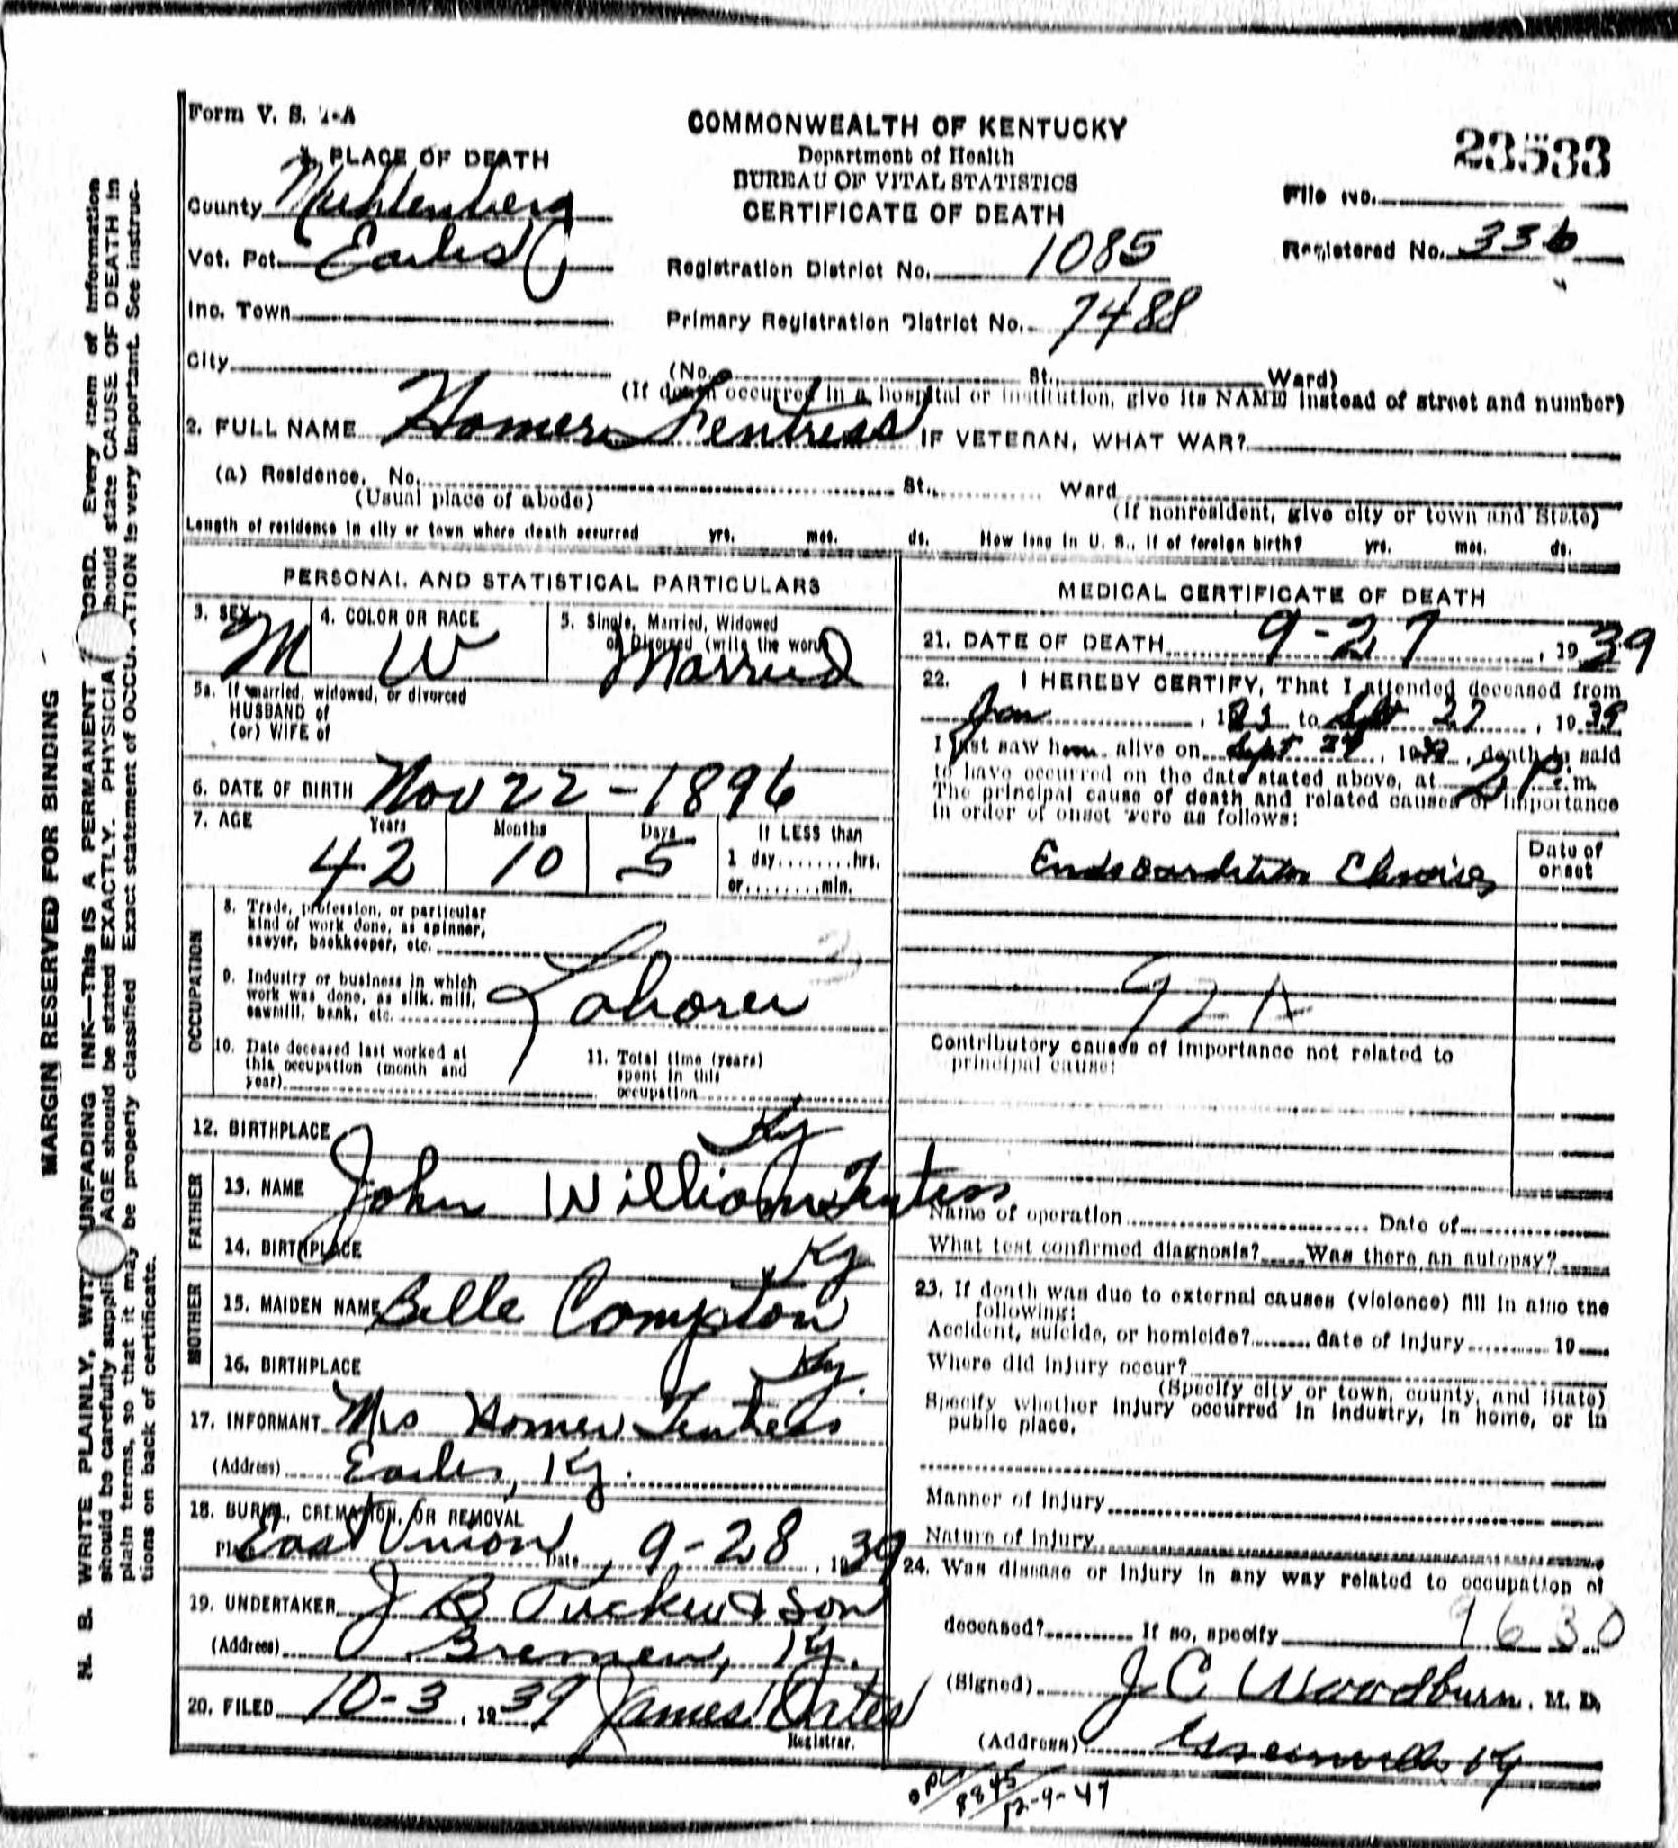 Form V. S. 1-A
COMMONWEALTH OF KENTUCKY
Department of Health
BUREAU OF VITAL STATISTICS
CERTIFICATE OF DEATH
23533
File No.
Registered No. 336
1. PLACE OF DEATH
County Muhlenberg
Vot. Pct. Earles
Inc. Town
City
Registration District No. 1085
Primary Registration District No. 7488
(No. St. Ward)
(If death occurred in a hospital or institution, give its NAME instead of street and number)
2. FULL NAME Homer Fentress IF VETERAN, WHAT WAR?
(a) Residence. No. St., Ward
(Usual place of abode) (If nonresident, give city or town and State)
Length of residence in city or town where death occurred yrs. mos. ds. How long in U. S., if of foreign birth? yrs. mos. ds.
PERSONAL AND STATISTICAL PARTICULARS
3. SEX M
4. COLOR OR RACE W
5. Single, Married, Widowed
or Divorced (write the word)
Married
5a. If married, widowed, or divorced
HUSBAND of
(or) WIFE of
6. DATE OF BIRTH Nov 22 - 1896
7. AGE Years Months Days If LESS than
42 10 5 1 day........hrs.
or........min.
OCCUPATION
8. Trade, profession, or particular
kind of work done, as spinner,
sawyer, bookkeeper, etc.
9. Industry or business in which
work was done, as silk mill,
sawmill, bank, etc.
Laborer
10. Date deceased last worked at
this occupation (month and
year)
11. Total time (years)
spent in this
occupation
12. BIRTHPLACE Ky
FATHER
13. NAME John William Fentess
14. BIRTHPLACE Ky
MOTHER
15. MAIDEN NAME Belle Compton
16. BIRTHPLACE Ky.
17. INFORMANT Mrs Homer Fentress
(Address) Earles, Ky.
18. BURIAL, CREMATION, OR REMOVAL
Place East Union Date 9-28, 1939
19. UNDERTAKER J B Tucker & Son
(Address) Bremen, Ky.
20. FILED 10-3, 1939 James Oates
Registrar.
MEDICAL CERTIFICATE OF DEATH
21. DATE OF DEATH 9-27, 1939
22. I HEREBY CERTIFY, That I attended deceased from
Jan to Sept 27, 1939
I last saw him alive on Sept 24, 1939, death is said
to have occurred on the date stated above, at 2 P. m.
The principal cause of death and related causes of importance
in order of onset were as follows:
Date of
onset
92 A
Contributory causes of importance not related to
principal cause:
Name of operation Date of
What test confirmed diagnosis? Was there an autopsy?
23. If death was due to external causes (violence) fill in also the
following:
Accident, suicide, or homicide? date of injury 19
Where did injury occur?
(Specify city or town, county, and State)
Specify whether injury occurred in industry, in home, or in
public place.
Manner of injury
Nature of injury
24. Was disease or injury in any way related to occupation of
deceased? If so, specify 9630
(Signed) J C Woodburn, M. D.
(Address) Greenville Ky
12-9-47
MARGIN RESERVED FOR BINDING
N. B. WRITE PLAINLY, WITH UNFADING INK—THIS IS A PERMANENT RECORD. Every item of information
should be carefully supplied. AGE should be stated EXACTLY. PHYSICIANS should state CAUSE OF DEATH in
plain terms, so that it may be properly classified. Exact statement of OCCUPATION is very important. See instruc-
tions on back of certificate.